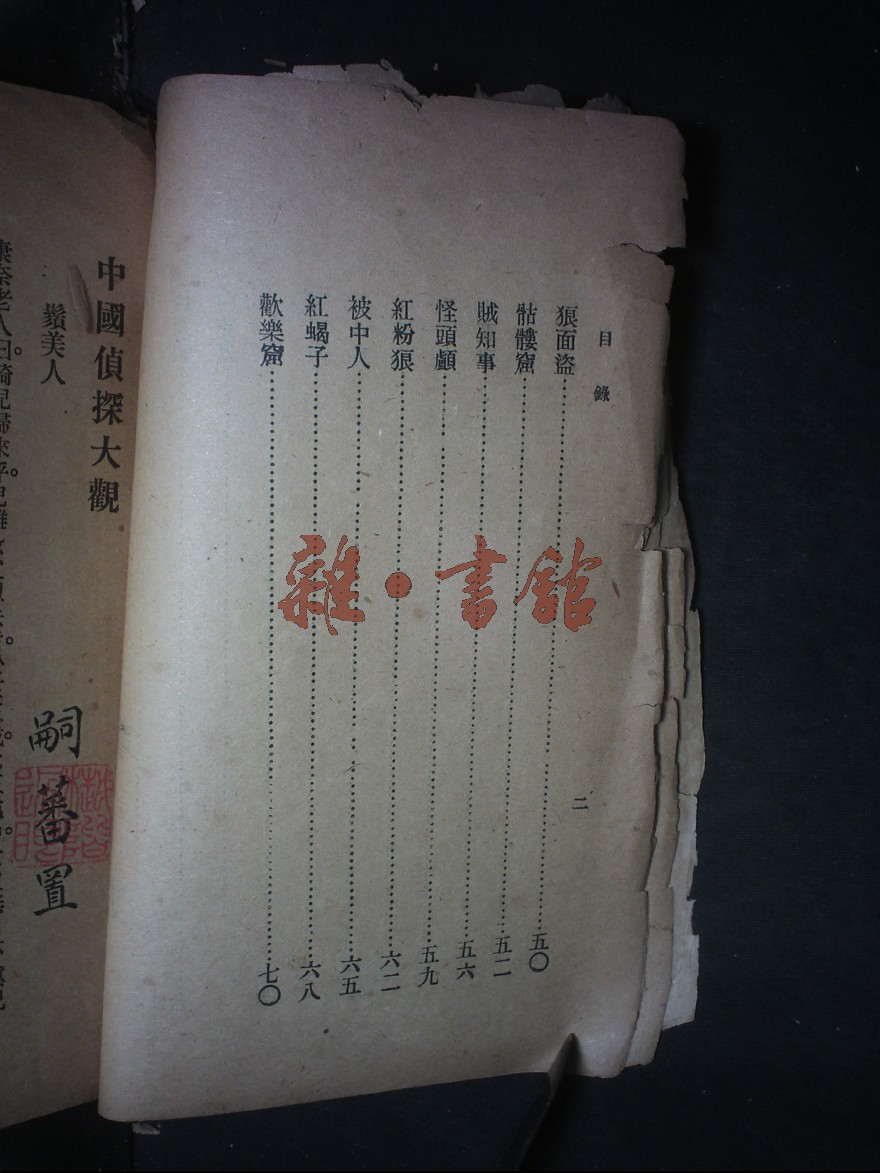 目錄
二
狼面盜⋯⋯五〇
骷髏窟⋯⋯五二
賊知事⋯⋯五六
怪頭顱⋯⋯五九
紅粉狼⋯⋯六二
被中人⋯⋯六五
紅蝎子⋯⋯六八
歡樂窟⋯⋯七〇
雜·書館
中國偵探大觀
鬚美人
嗣蕃置